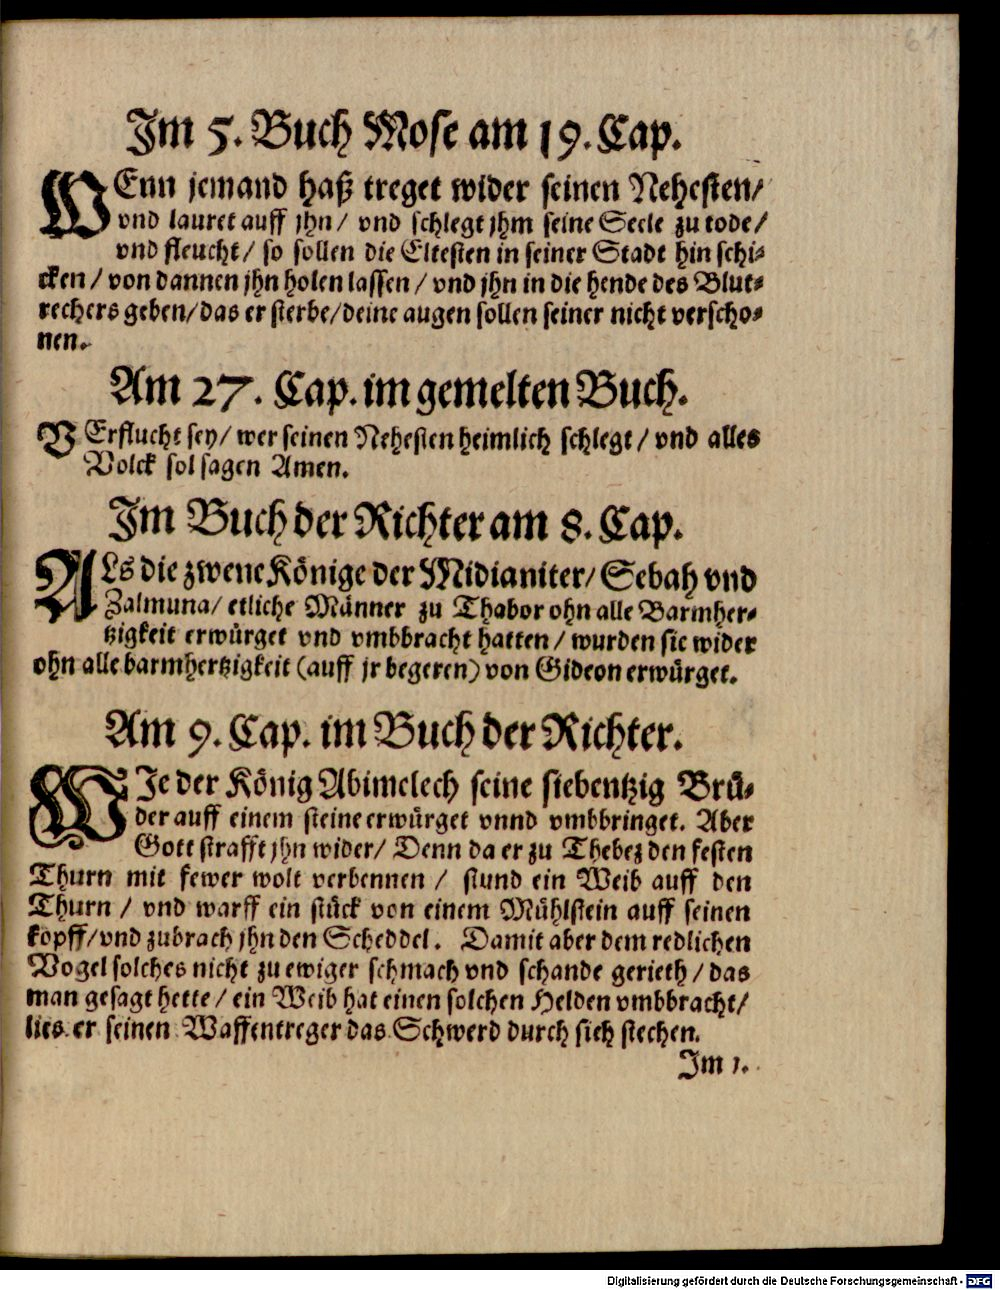 61
Im 5. Buch Mose am 19. Cap.
WEnn jemand haß treget wider seinen Nehesten/
vnd lauret auff jhn/ vnd schlegt jhm seine Seele zu tode/
vnd fleucht/ so sollen die Eltesten in seiner Stadt hin schi-
cken/ von dannen jhn holen lassen/ vnd jhn in die hende des Blut-
rechers geben/ das er sterbe/ deine augen sollen seiner nicht verscho-
nen.
Am 27. Cap. im gemelten Buch.
VErflucht sey/ wer seinen Nehesten heimlich schlegt/ vnd alles
Volck sol sagen Amen.
Im Buch der Richter am 8. Cap.
ALs die zwene Könige der Midianiter/ Sebah vnd
Zalmuna/ etliche Männer zu Thabor ohn alle Barmher-
tzigkeit erwürget vnd vmbbracht hatten/ wurden sie wider
ohn alle barmhertzigkeit (auff jr begeren) von Gideon erwürget.
Am 9. Cap. im Buch der Richter.
WIe der König Abimelech seine siebentzig Brü-
der auff einem steine erwürget vnnd vmbbringet. Aber
Gott strafft jhn wider/ Denn da er zu Thebez den festen
Thurn mit fewer wolt verbennen/ stund ein Weib auff den
Thurn/ vnd warff ein stück von einem Mühlstein auff seinen
kopff/ vnd zubrach jhn den Scheddel. Damit aber dem redlichen
Vogel solches nicht zu ewiger schmach vnd schande gerieth/ das
man gesagt hette/ ein Weib hat einen solchen Helden vmbbracht/
lies er seinen Waffentreger das Schwerd durch sich stechen.
Im 1.
Digitalisierung gefördert durch die Deutsche Forschungsgemeinschaft - DFG